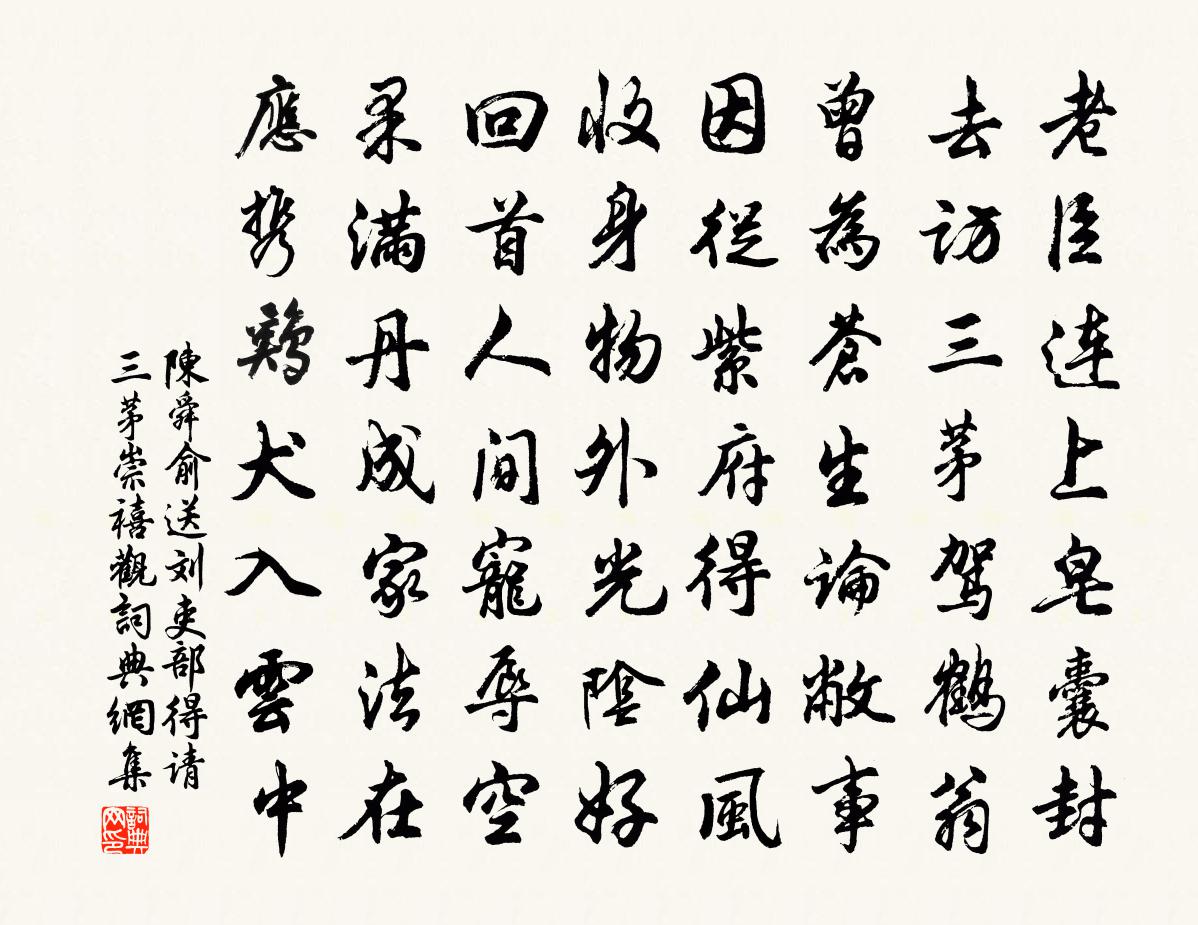 老臣連上皂囊封
去訪三茅駕鶴翁
曾為蒼生論敝事
因從紫府得仙風
收身物外光陰好
回首人間寵辱空
果滿丹成家法在
應携鷄犬入雲中
陳舜俞送刘吏部得请
三茅崇禧觀詞典網集
詞典网印